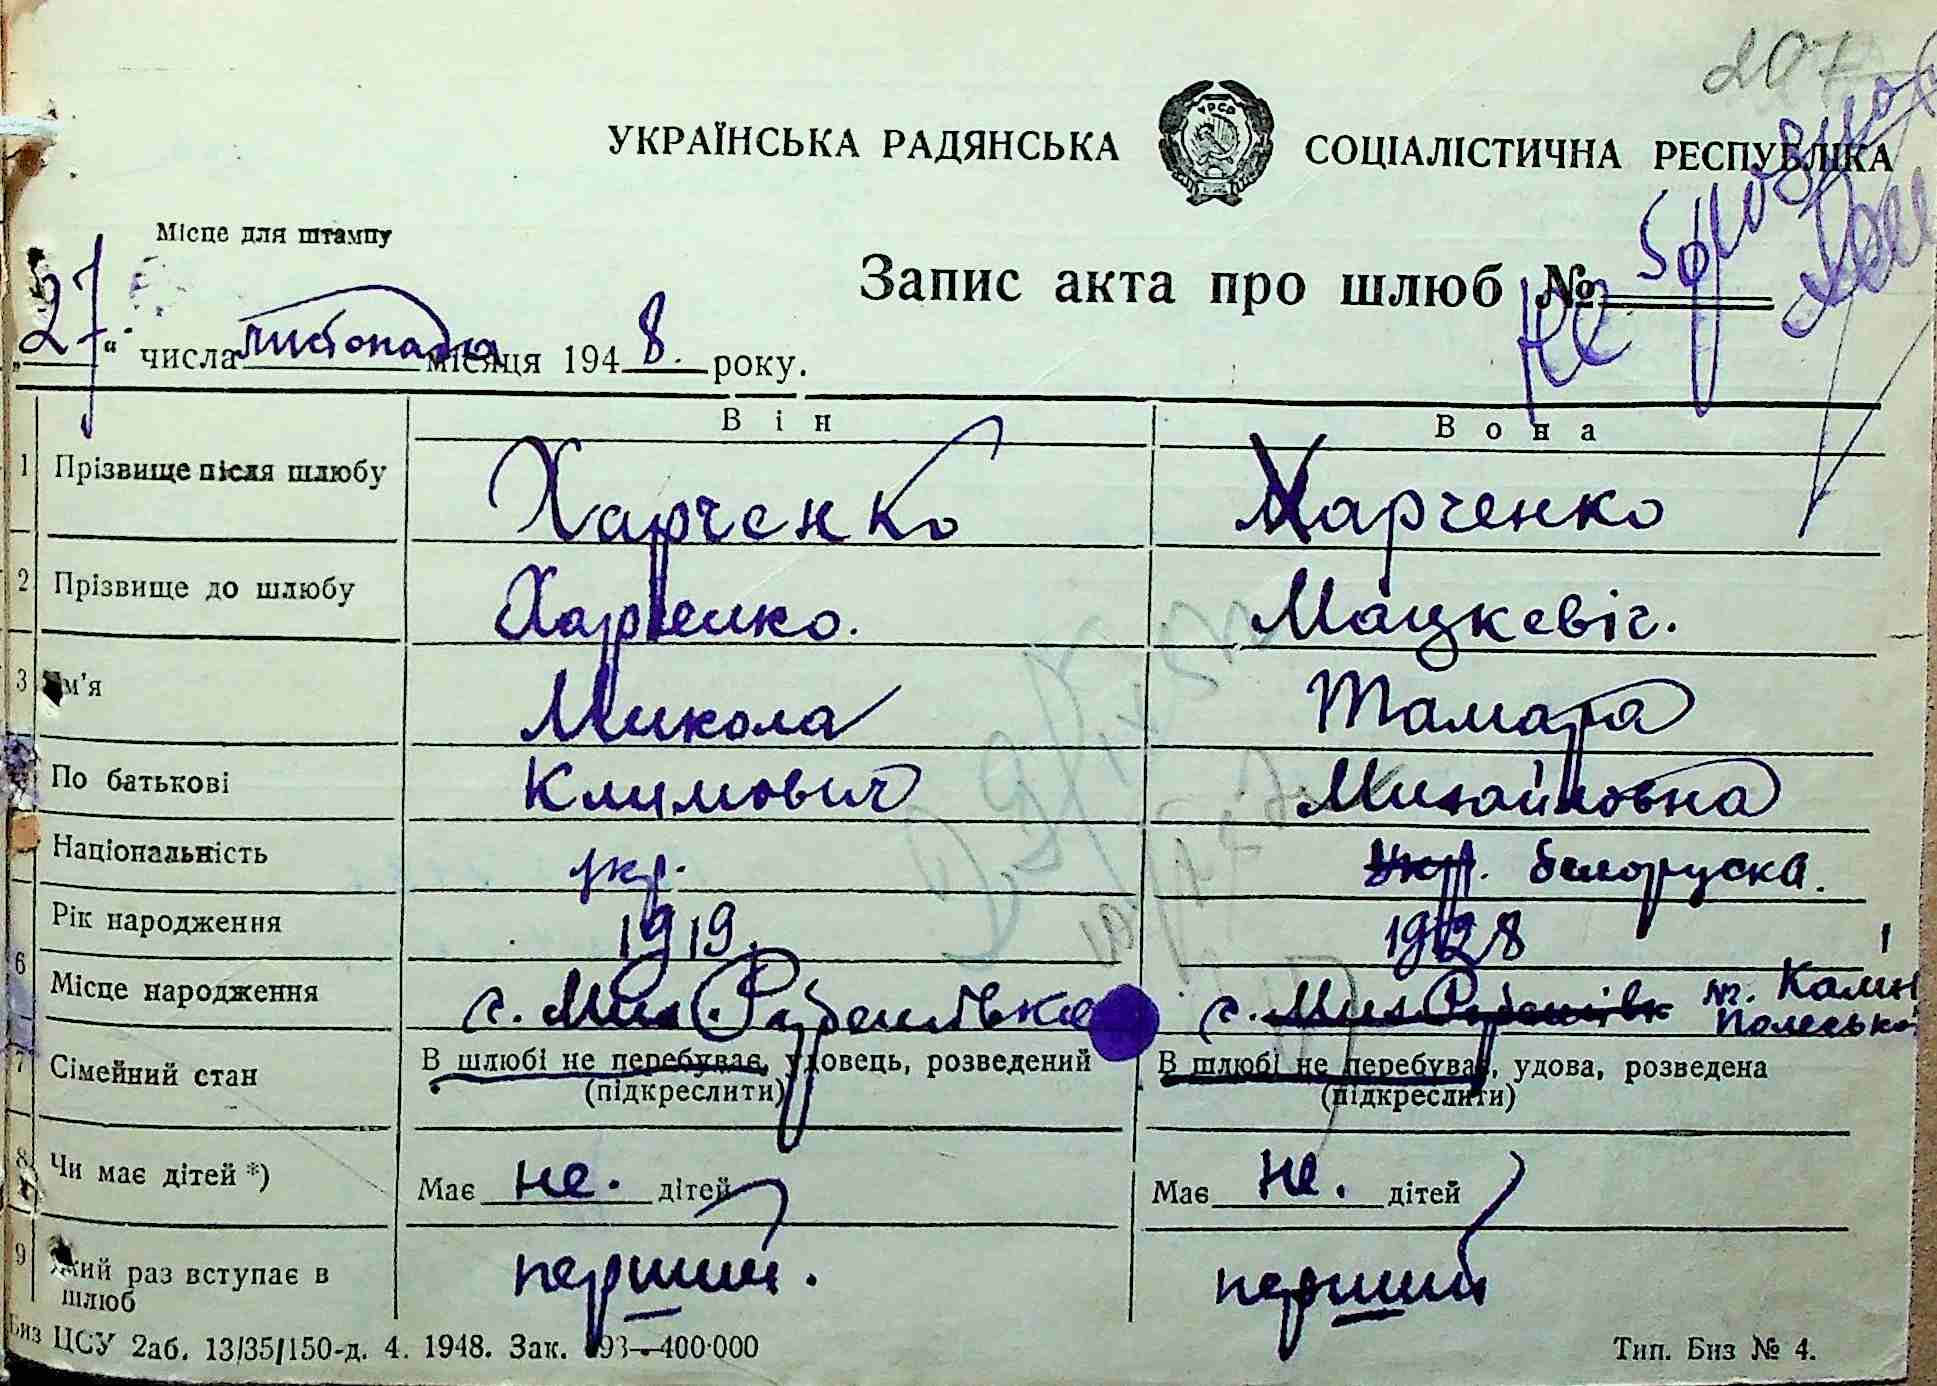 207
УКРАЇНСЬКА РАДЯНСЬКА СОЦІАЛІСТИЧНА РЕСПУБЛІКА
УРСР
Місце для штампу
Запис акта про шлюб № 5
не
„27“ числа листопада місяця 1948. року.
Він Вона
1 Прізвище після шлюбу Харченко Харченко
2 Прізвище до шлюбу Харченко. Мацкевіч.
3 Ім'я Микола Тамара
По батькові Климович Михайловна
Національність укр. укр. белоруска.
Рік народження 1919. 1928
6 Місце народження с. Мил. Рубанівка с. Мил. Рубанівк м. Калин
Полеської
7 Сімейний стан В шлюбі не перебуває, удовець, розведений В шлюбі не перебуває, удова, розведена
(підкреслити) (підкреслити)
8 Чи має дітей *) Має не. дітей Має не. дітей
9 Який раз вступає в шлюб перший. перший
Биз ЦСУ 2аб. 13/35/150-д. 4. 1948. Зак. 893—400·000 Тип. Биз № 4.